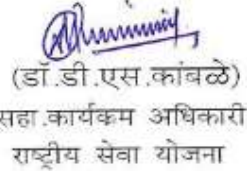 (डॉ.डी.एस.कांबळे)
सहा.कार्यकम अधिकारी
राष्ट्रीय सेवा योजना